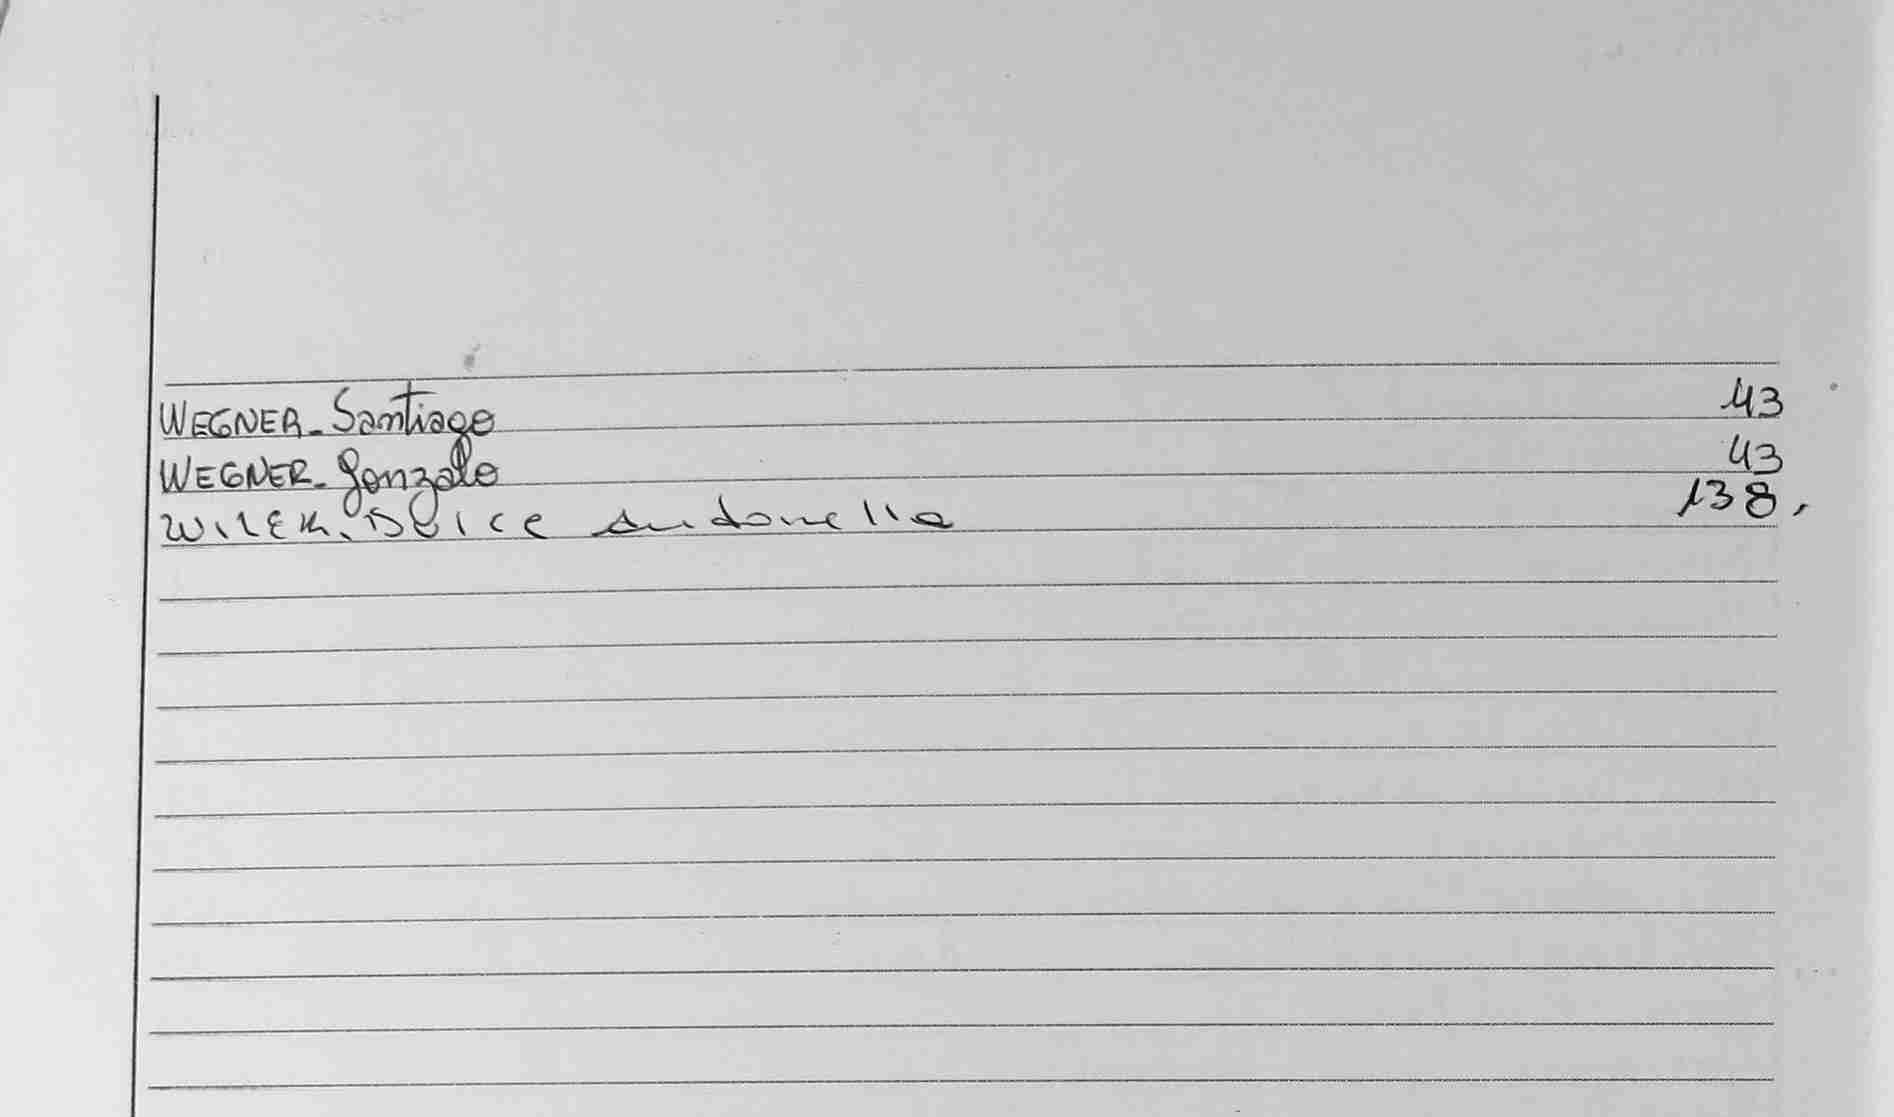 WEGNER - Santiago 43
WEGNER - Gonzalo 43
Antonella 138